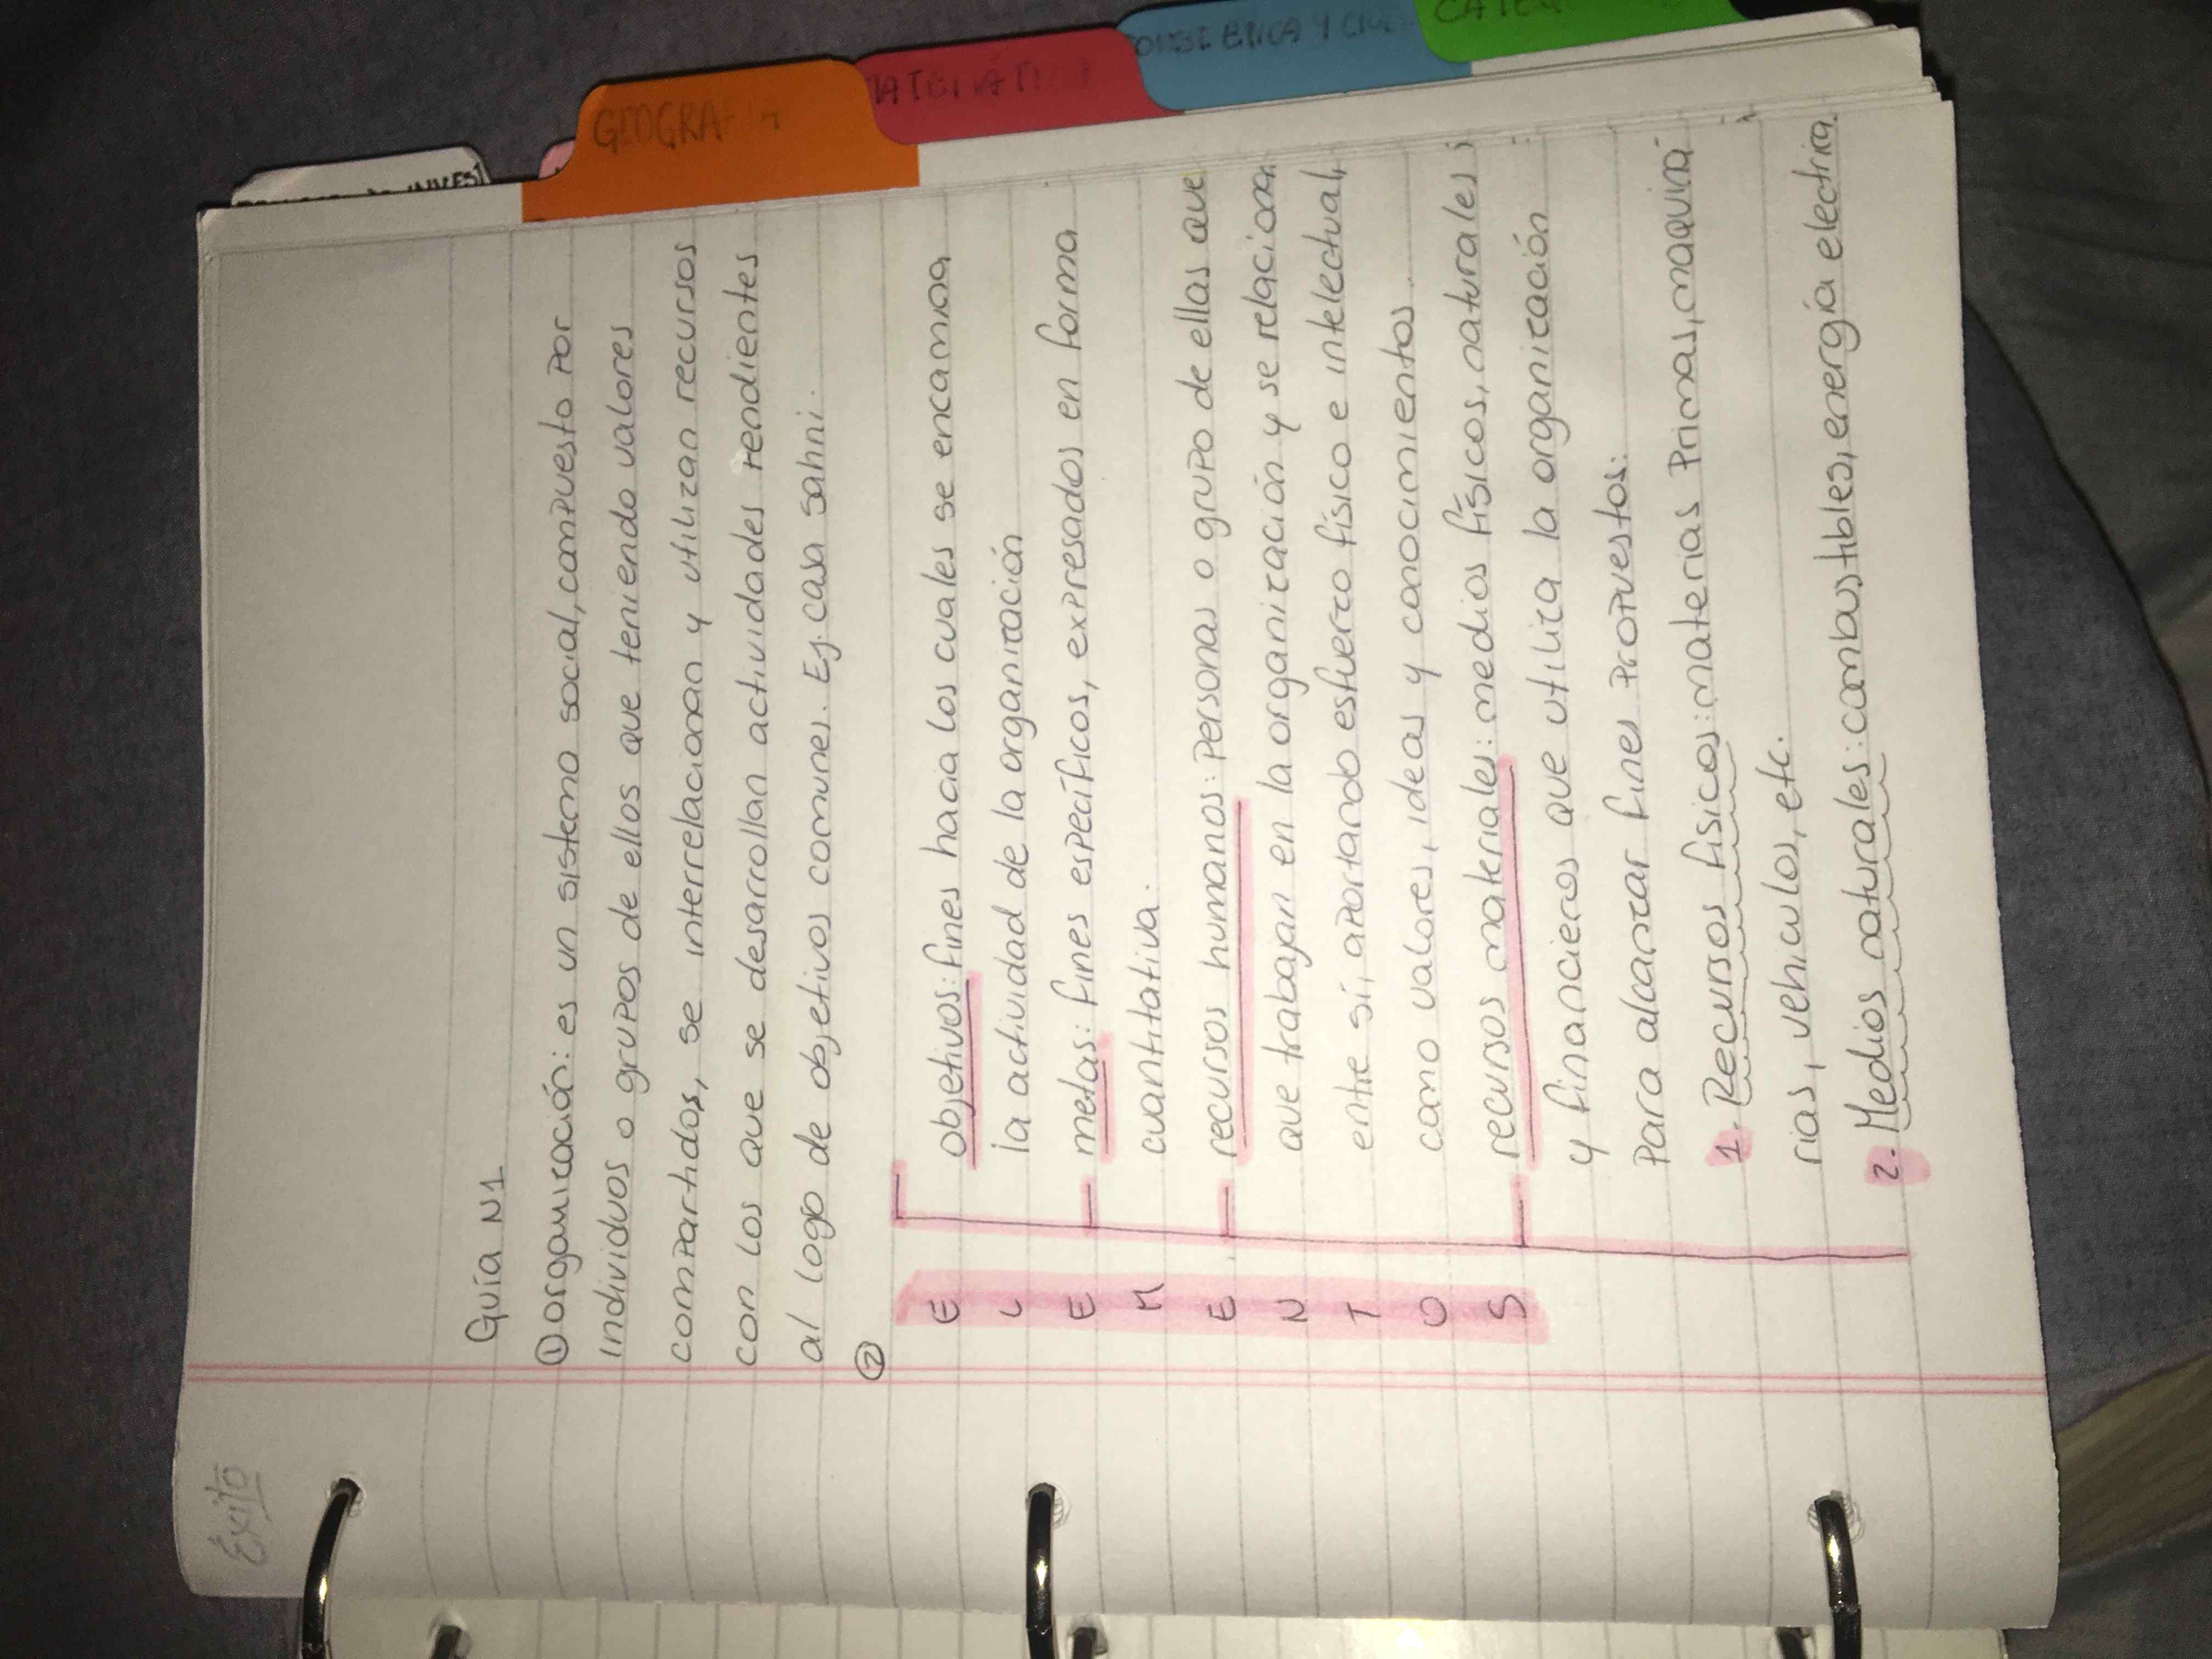 Éxito
Guía N1
① organización: es un sistema social, compuesto por
individuos o grupos de ellos que teniendo valores
compartidos, se interrelacionan y utilizan recursos
con los que se desarrollan actividades rendientes
al logo de objetivos comunes. Ej. casa sahni.
②
ELEMENTOS
objetivos: fines hacia los cuales se encamina
la actividad de la organización
metas: fines específicos, expresados en forma
cuantitativa.
recursos humanos: Personas o grupo de ellas que
que trabajan en la organización y se relacionan
entre sí, aportando esfuerzo físico e intelectual,
como valores, ideas y conocimientos.
recursos materiales: medios físicos, naturales
y financieros que utiliza la organización
Para alcanzar fines propuestos:
1. Recursos físicos: materias Primas, maquina
rias, vehiculos, etc.
2. Medios naturales: combustibles, energía electrica
GEOGRAFIA